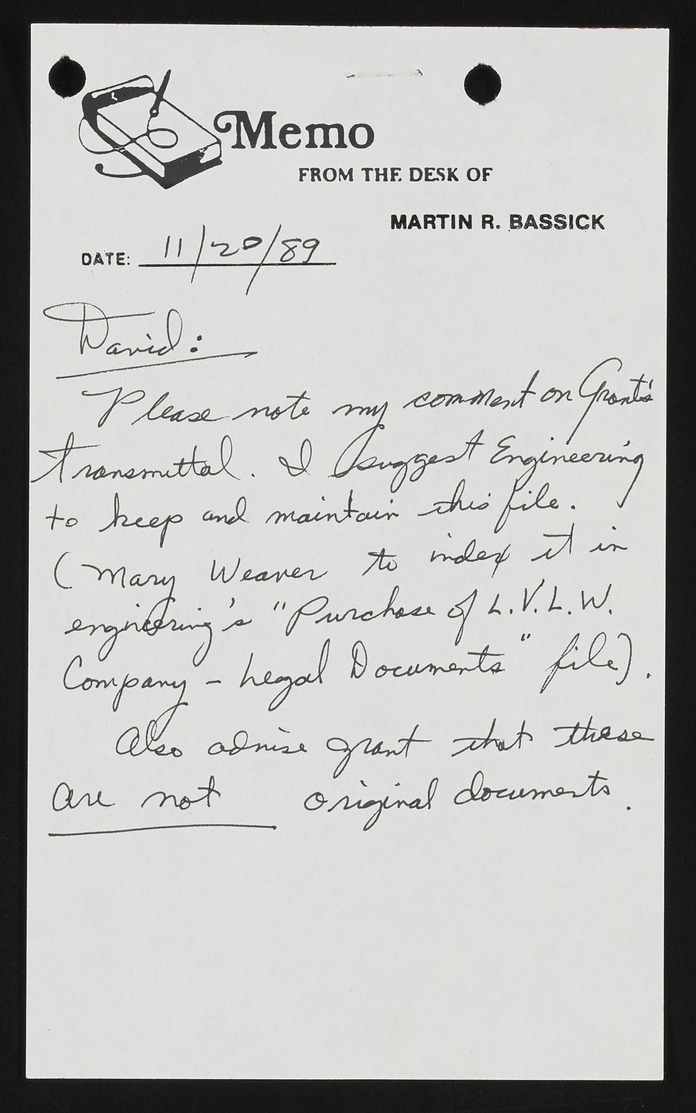 Memo
FROM THE DESK OF
MARTIN R. BASSICK
DATE: 11/20/89
David:
Please note my comment on Grant's
transmittal. I suggest Engineering
to keep and maintain this file.
(Mary Weaver to index it in
engineering's "Purchase of L.V.L.W.
Company - Legal Documents" file).
Also advise grant that these
are not original documents.